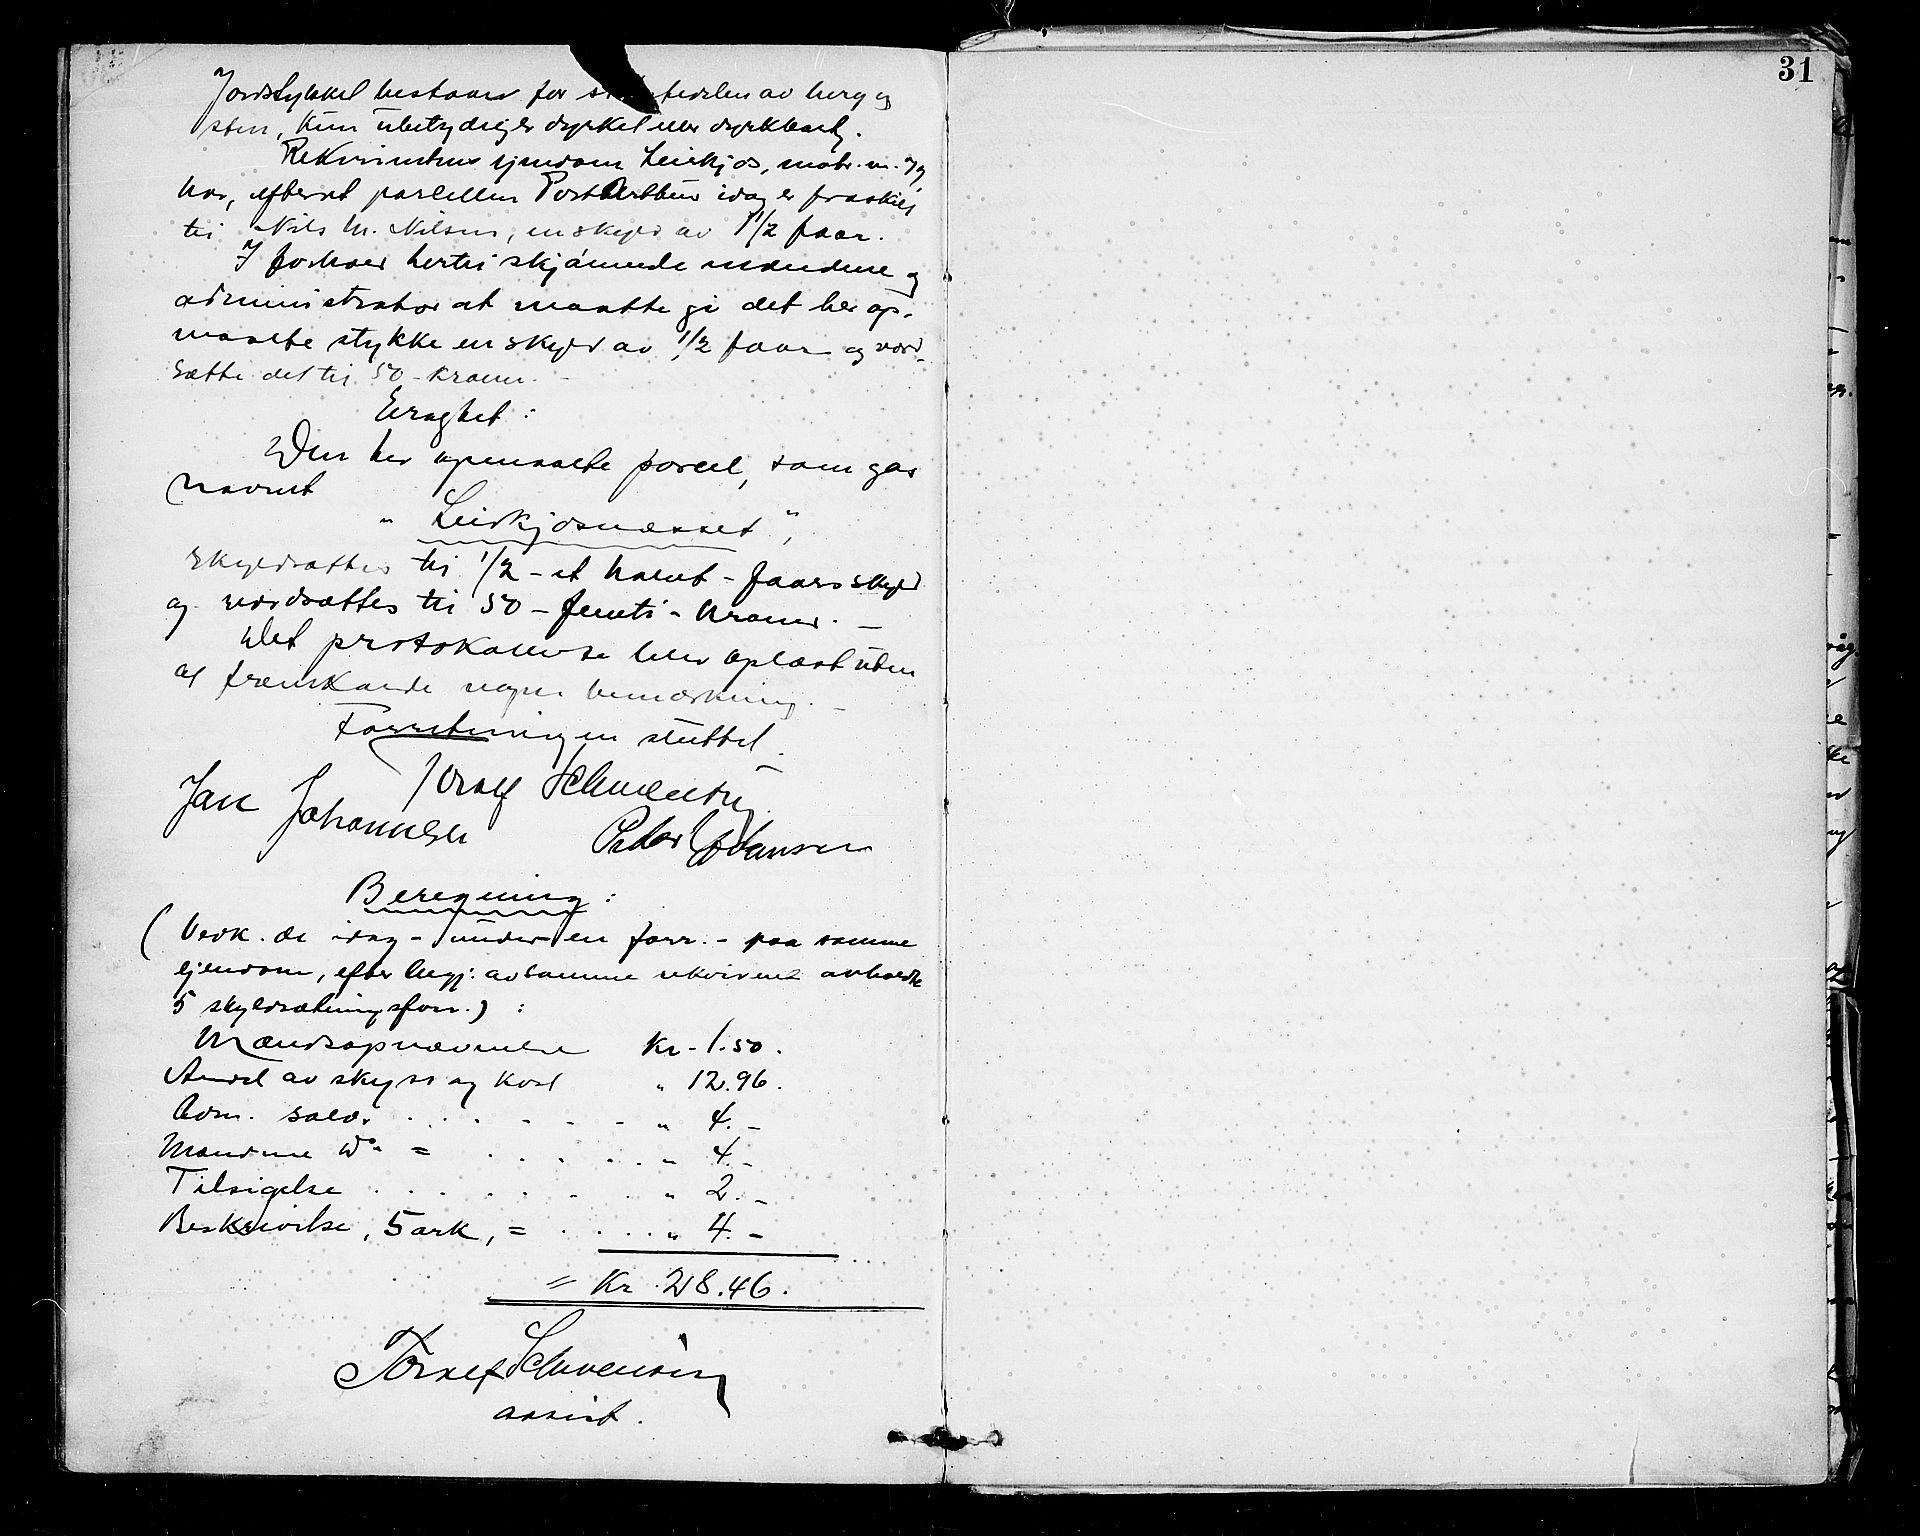 31
Jordstykket bestaar for av berg og
sten, kun ubetydelig er dyrket eller dyrkbart.
Rekvirentens ejendom Leirkjos, matr. n.
har, efterat parcellen Port Arthur idag er fraskilt
til Nils M. Nilsen, en skyld av 1 1/2 faar.
I forhold hertil skjønnede mændene og
administrator at maatte gi det her op-
maalte stykke en skyld av 1/2 faar og værd-
sætte det til 50 - kroner. -
Eragtet:
Den her opmaalte parcel, som gas
navnet
" Leirkjosnesset ",
skyldsattes til 1/2 - et halvt - faars skyld
og værdsættes til 50 - femti - kroner. -
Det protokollerte blev oplæst uten
at fremkalde nogen bemærkning. -
Forretningen sluttet.
Toralf Schwensen
Jan Johannesen Peder Johansen
Beregning:
( Verk. de idag - under en forr. - paa samme
ejendom, efter begj: av samme rekvirent avholdte
5 skyldsætningsforr.) :
Mændsopnævnelse Kr - 1.50.
Andel av skyss og kost " 12.96.
Adm. salær . . . . . . " 4. -
Mændene do = . . . . . " 4. -
Tilsigelse . . . . . . " 2. -
Beskrivelse, 5 ark, = . . . . " 4. -
= Kr. 28.46.
Toralf Schwensen
assist.